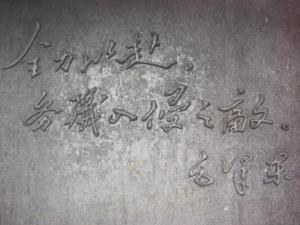 全力以赴，
务歼入侵之敵。
毛泽东